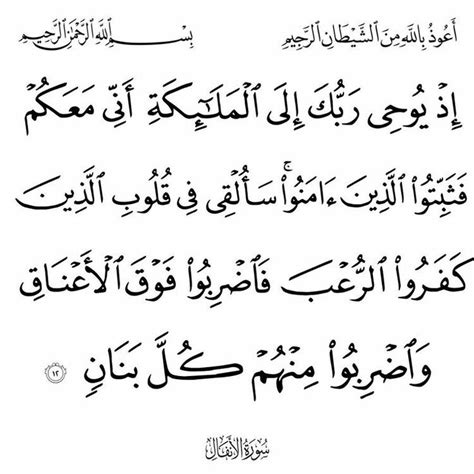 أَعُوذُ بِٱللَّهِ مِنَ ٱلشَّيْطَانِ ٱلرَّجِيمِ بِسْمِ ٱللَّهِ ٱلرَّحْمَٰنِ ٱلرَّحِيمِ
إِذْ يُوحِى رَبُّكَ إِلَى ٱلْمَلَٰٓئِكَةِ أَنِّى مَعَكُمْ
فَثَبِّتُوا۟ ٱلَّذِينَ ءَامَنُوا۟ ۚ سَأُلْقِى فِى قُلُوبِ ٱلَّذِينَ
كَفَرُوا۟ ٱلرُّعْبَ فَٱضْرِبُوا۟ فَوْقَ ٱلْأَعْنَاقِ
وَٱضْرِبُوا۟ مِنْهُمْ كُلَّ بَنَانٍ ١٢
سُورَةُ الأَنفَالِ